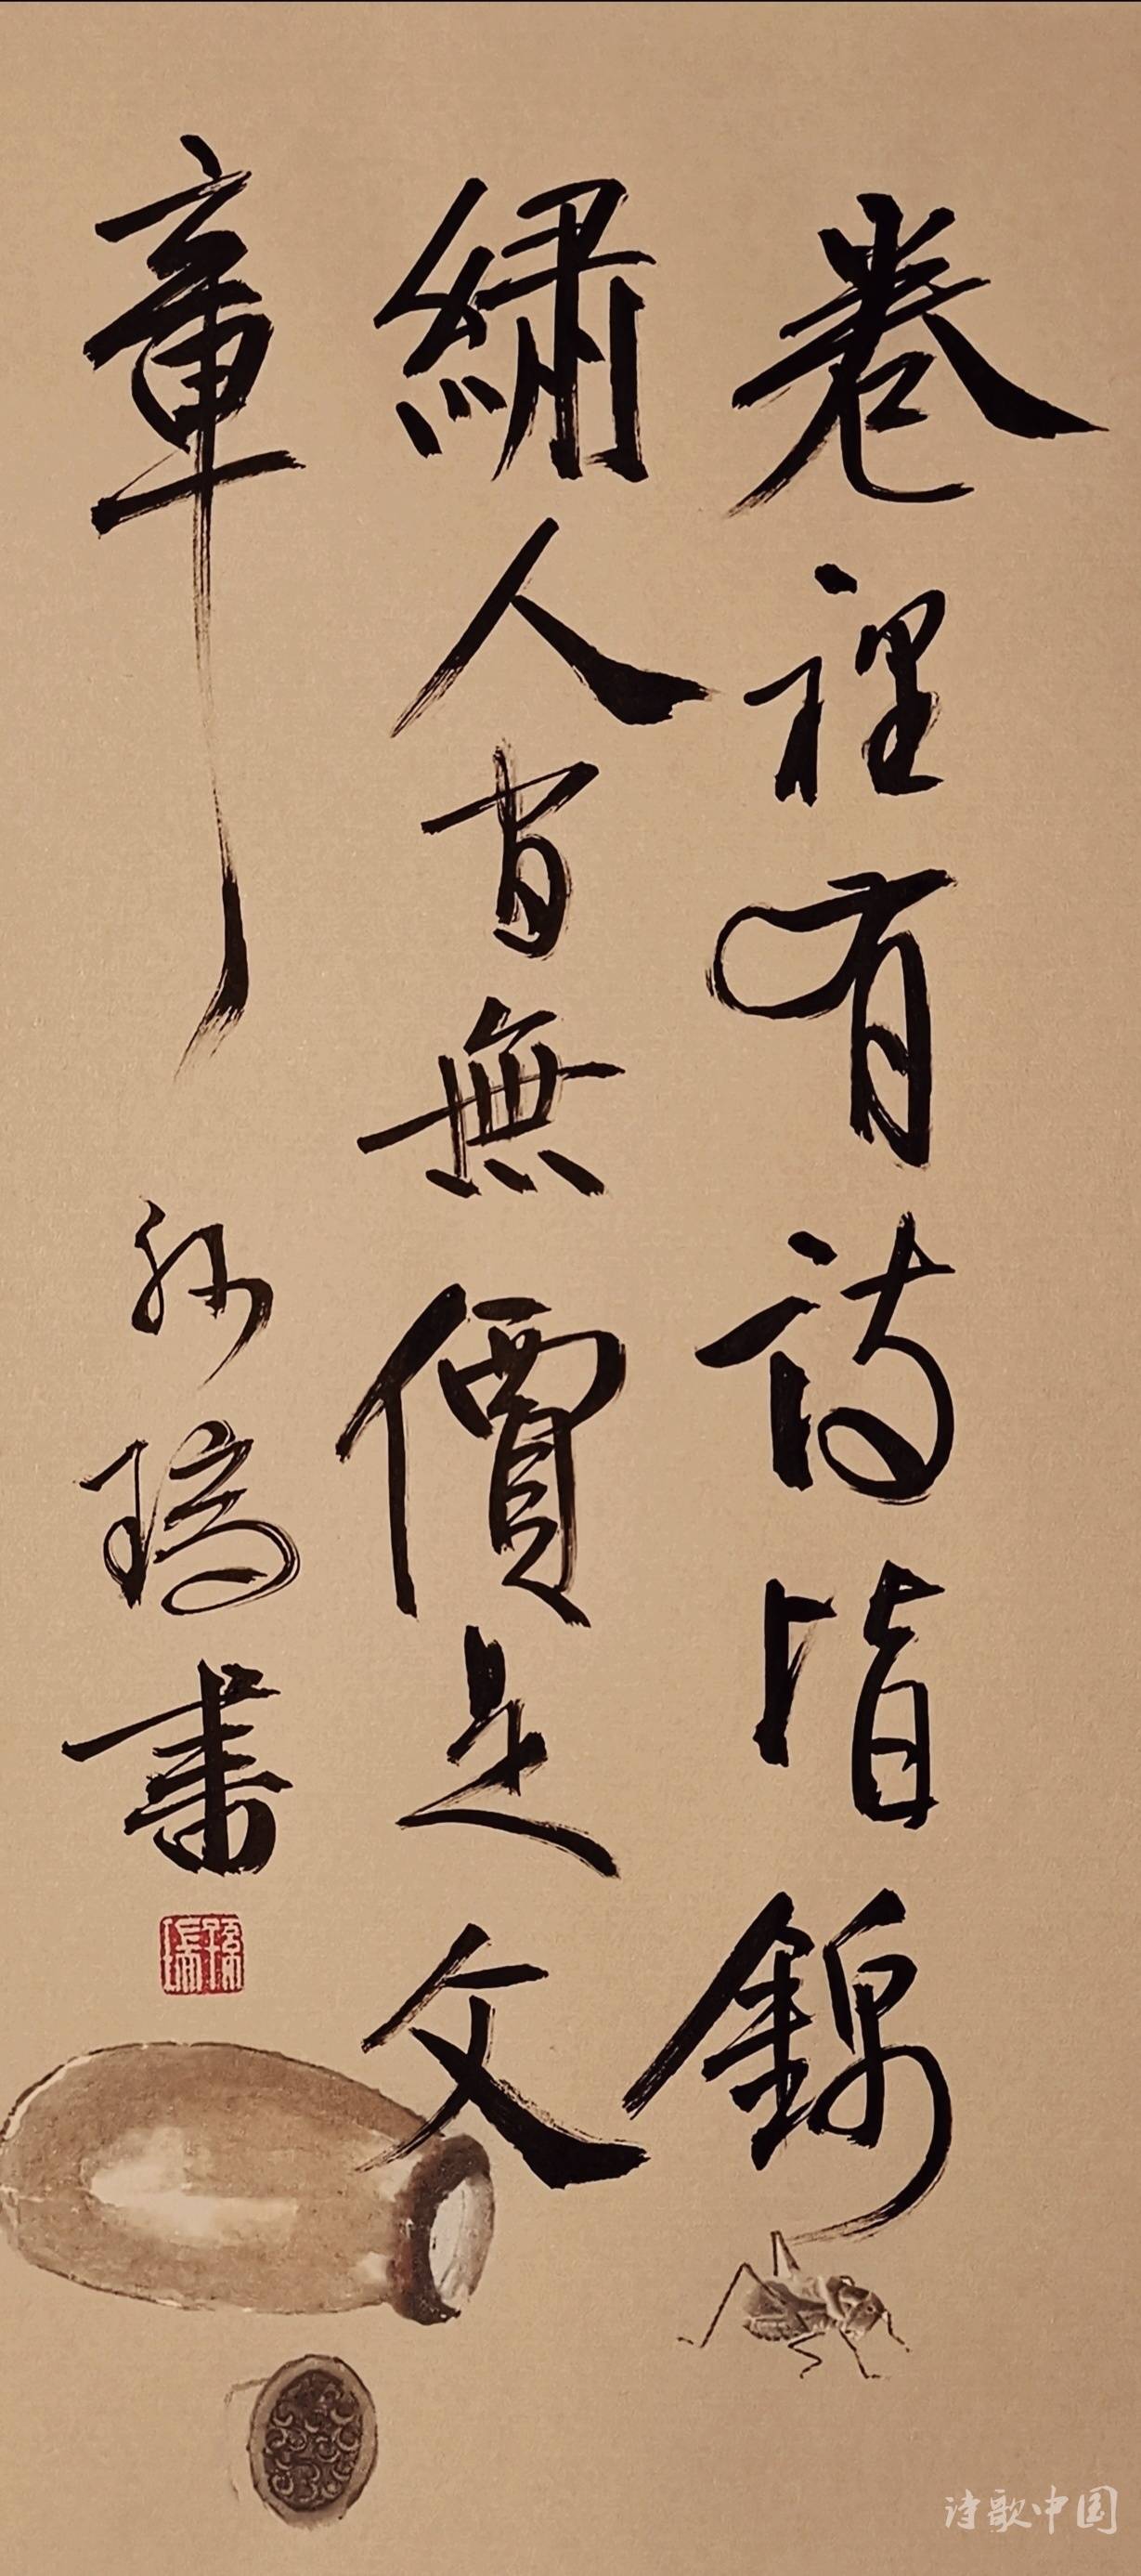 卷裡有詩皆錦
繡人間無價是文
章
孫瑞書
孫瑞
诗歌中国